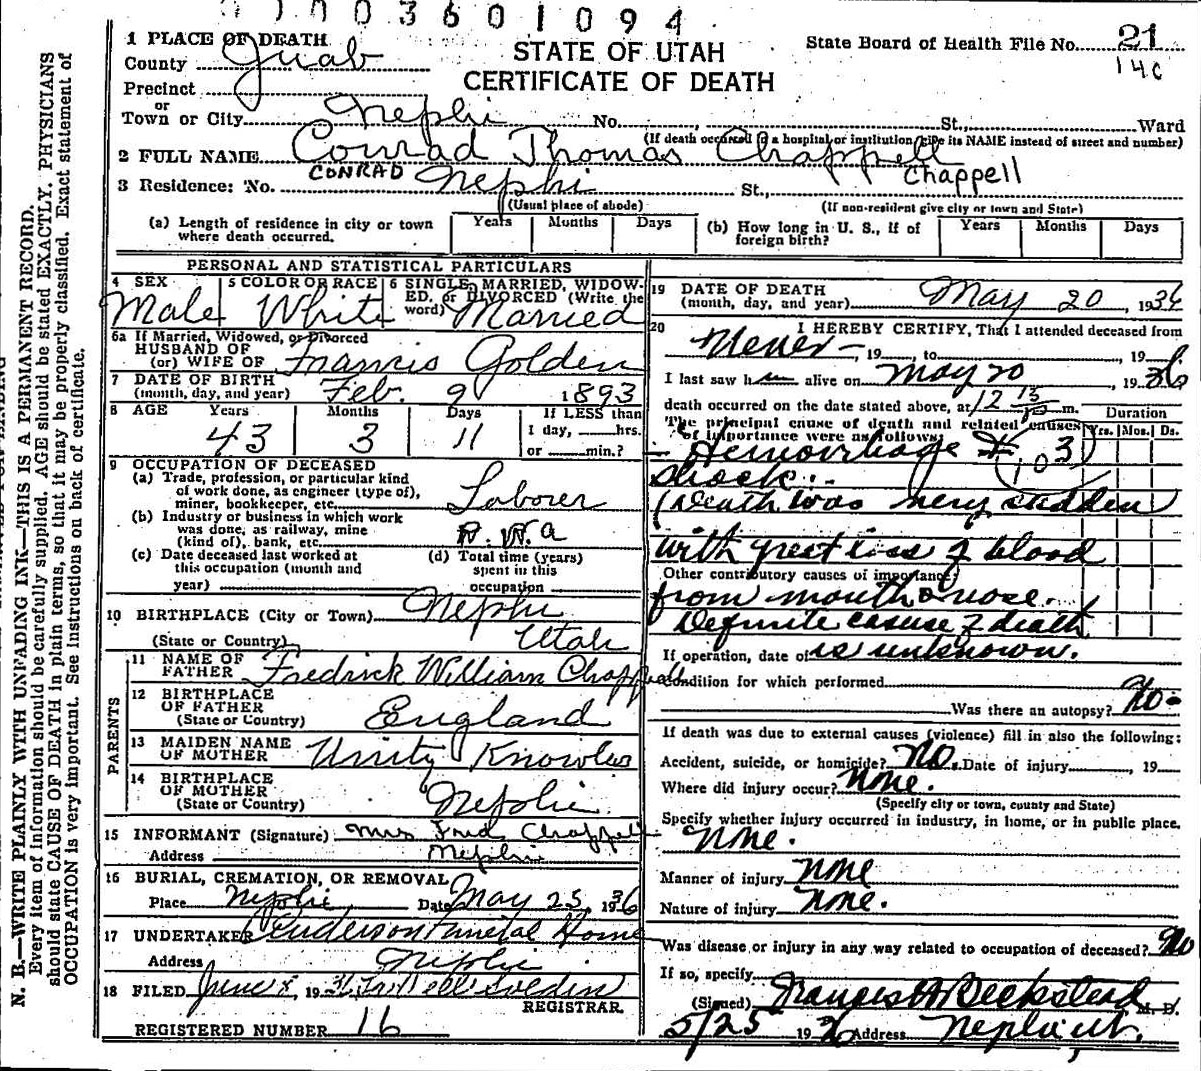 0003601094
1 PLACE OF DEATH
County Juab
STATE OF UTAH
CERTIFICATE OF DEATH
State Board of Health File No. 21
14c
Precinct
or
Town or City Nephi No. St., Ward
(If death occurred in a hospital or institution give its NAME instead of street and number)
2 FULL NAME Conrad Thomas Chappell
CONRAD Chappell
3 Residence: No. Nephi St.,
(Usual place of abode) (If non-resident give city or town and State)
(a) Length of residence in city or town where death occurred. Years Months Days (b) How long in U. S., if of foreign birth? Years Months Days
PERSONAL AND STATISTICAL PARTICULARS
4 SEX Male
5 COLOR OR RACE White
6 SINGLE, MARRIED, WIDOWED, or DIVORCED (Write the word) Married
6a If Married, Widowed, or Divorced
HUSBAND OF
(or) WIFE OF Francis Golden
7 DATE OF BIRTH
(month, day, and year) Feb. 9 1893
8 AGE Years Months Days If LESS than
43 3 11 1 day, hrs.
or min.?
9 OCCUPATION OF DECEASED
(a) Trade, profession, or particular kind
of work done, as engineer (type of),
miner, bookkeeper, etc. Laborer
(b) Industry or business in which work
was done, as railway, mine
(kind of), bank, etc. P. W. A
(c) Date deceased last worked at
this occupation (month and
year)
(d) Total time (years)
spent in this
occupation
10 BIRTHPLACE (City or Town) Nephi
(State or Country) Utah
PARENTS
11 NAME OF
FATHER Fredrick William Chappell
12 BIRTHPLACE
OF FATHER
(State or Country) England
13 MAIDEN NAME
OF MOTHER Unity Knowles
14 BIRTHPLACE
OF MOTHER
(State or Country) Nephi
15 INFORMANT (Signature) Mrs Fred Chappell
Address Nephi
16 BURIAL, CREMATION, OR REMOVAL
Place Nephi Date May 25, 1936
17 UNDERTAKER Anderson Funeral Home
Address Nephi
18 FILED June 19
REGISTRAR.
REGISTERED NUMBER 16
19 DATE OF DEATH
(month, day, and year) May 20, 1936
20 I HEREBY CERTIFY, That I attended deceased from
Never, 19, to 1936
I last saw him alive on May 20, 1936
death occurred on the date stated above, at 12 15 m.
The principal cause of death and related causes
of importance were as follows: Duration
Yrs. Mos. Ds.
Hemorrhage & 103
Shock.
(Death was very sudden
with great loss of blood
Other contributory causes of importance:
from mouth & nose.
Definite casuse of death
If operation, date of is unknown.
Condition for which performed
Was there an autopsy? No
If death was due to external causes (violence) fill in also the following:
Accident, suicide, or homicide? No. Date of injury, 19
Where did injury occur? None.
(Specify city or town, county and State)
Specify whether injury occurred in industry, in home, or in public place.
None.
Manner of injury None
Nature of injury None.
Was disease or injury in any way related to occupation of deceased? No
If so, specify
(Signed) Francis H Beckstead M. D.
5/25 1936 Address Nephi ut.
N. B.—WRITE PLAINLY WITH UNFADING INK—THIS IS A PERMANENT RECORD.
Every item of information should be carefully supplied. AGE should be stated EXACTLY. PHYSICIANS
should state CAUSE OF DEATH in plain terms, so that it may be properly classified. Exact statement of
OCCUPATION is very important. See instructions on back of certificate.